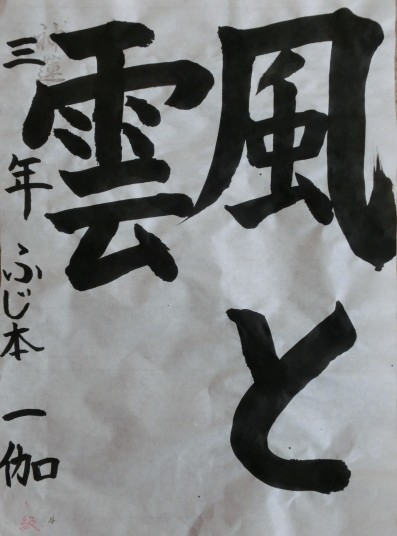 風と
雲
三年 ふじ本 一伽
級